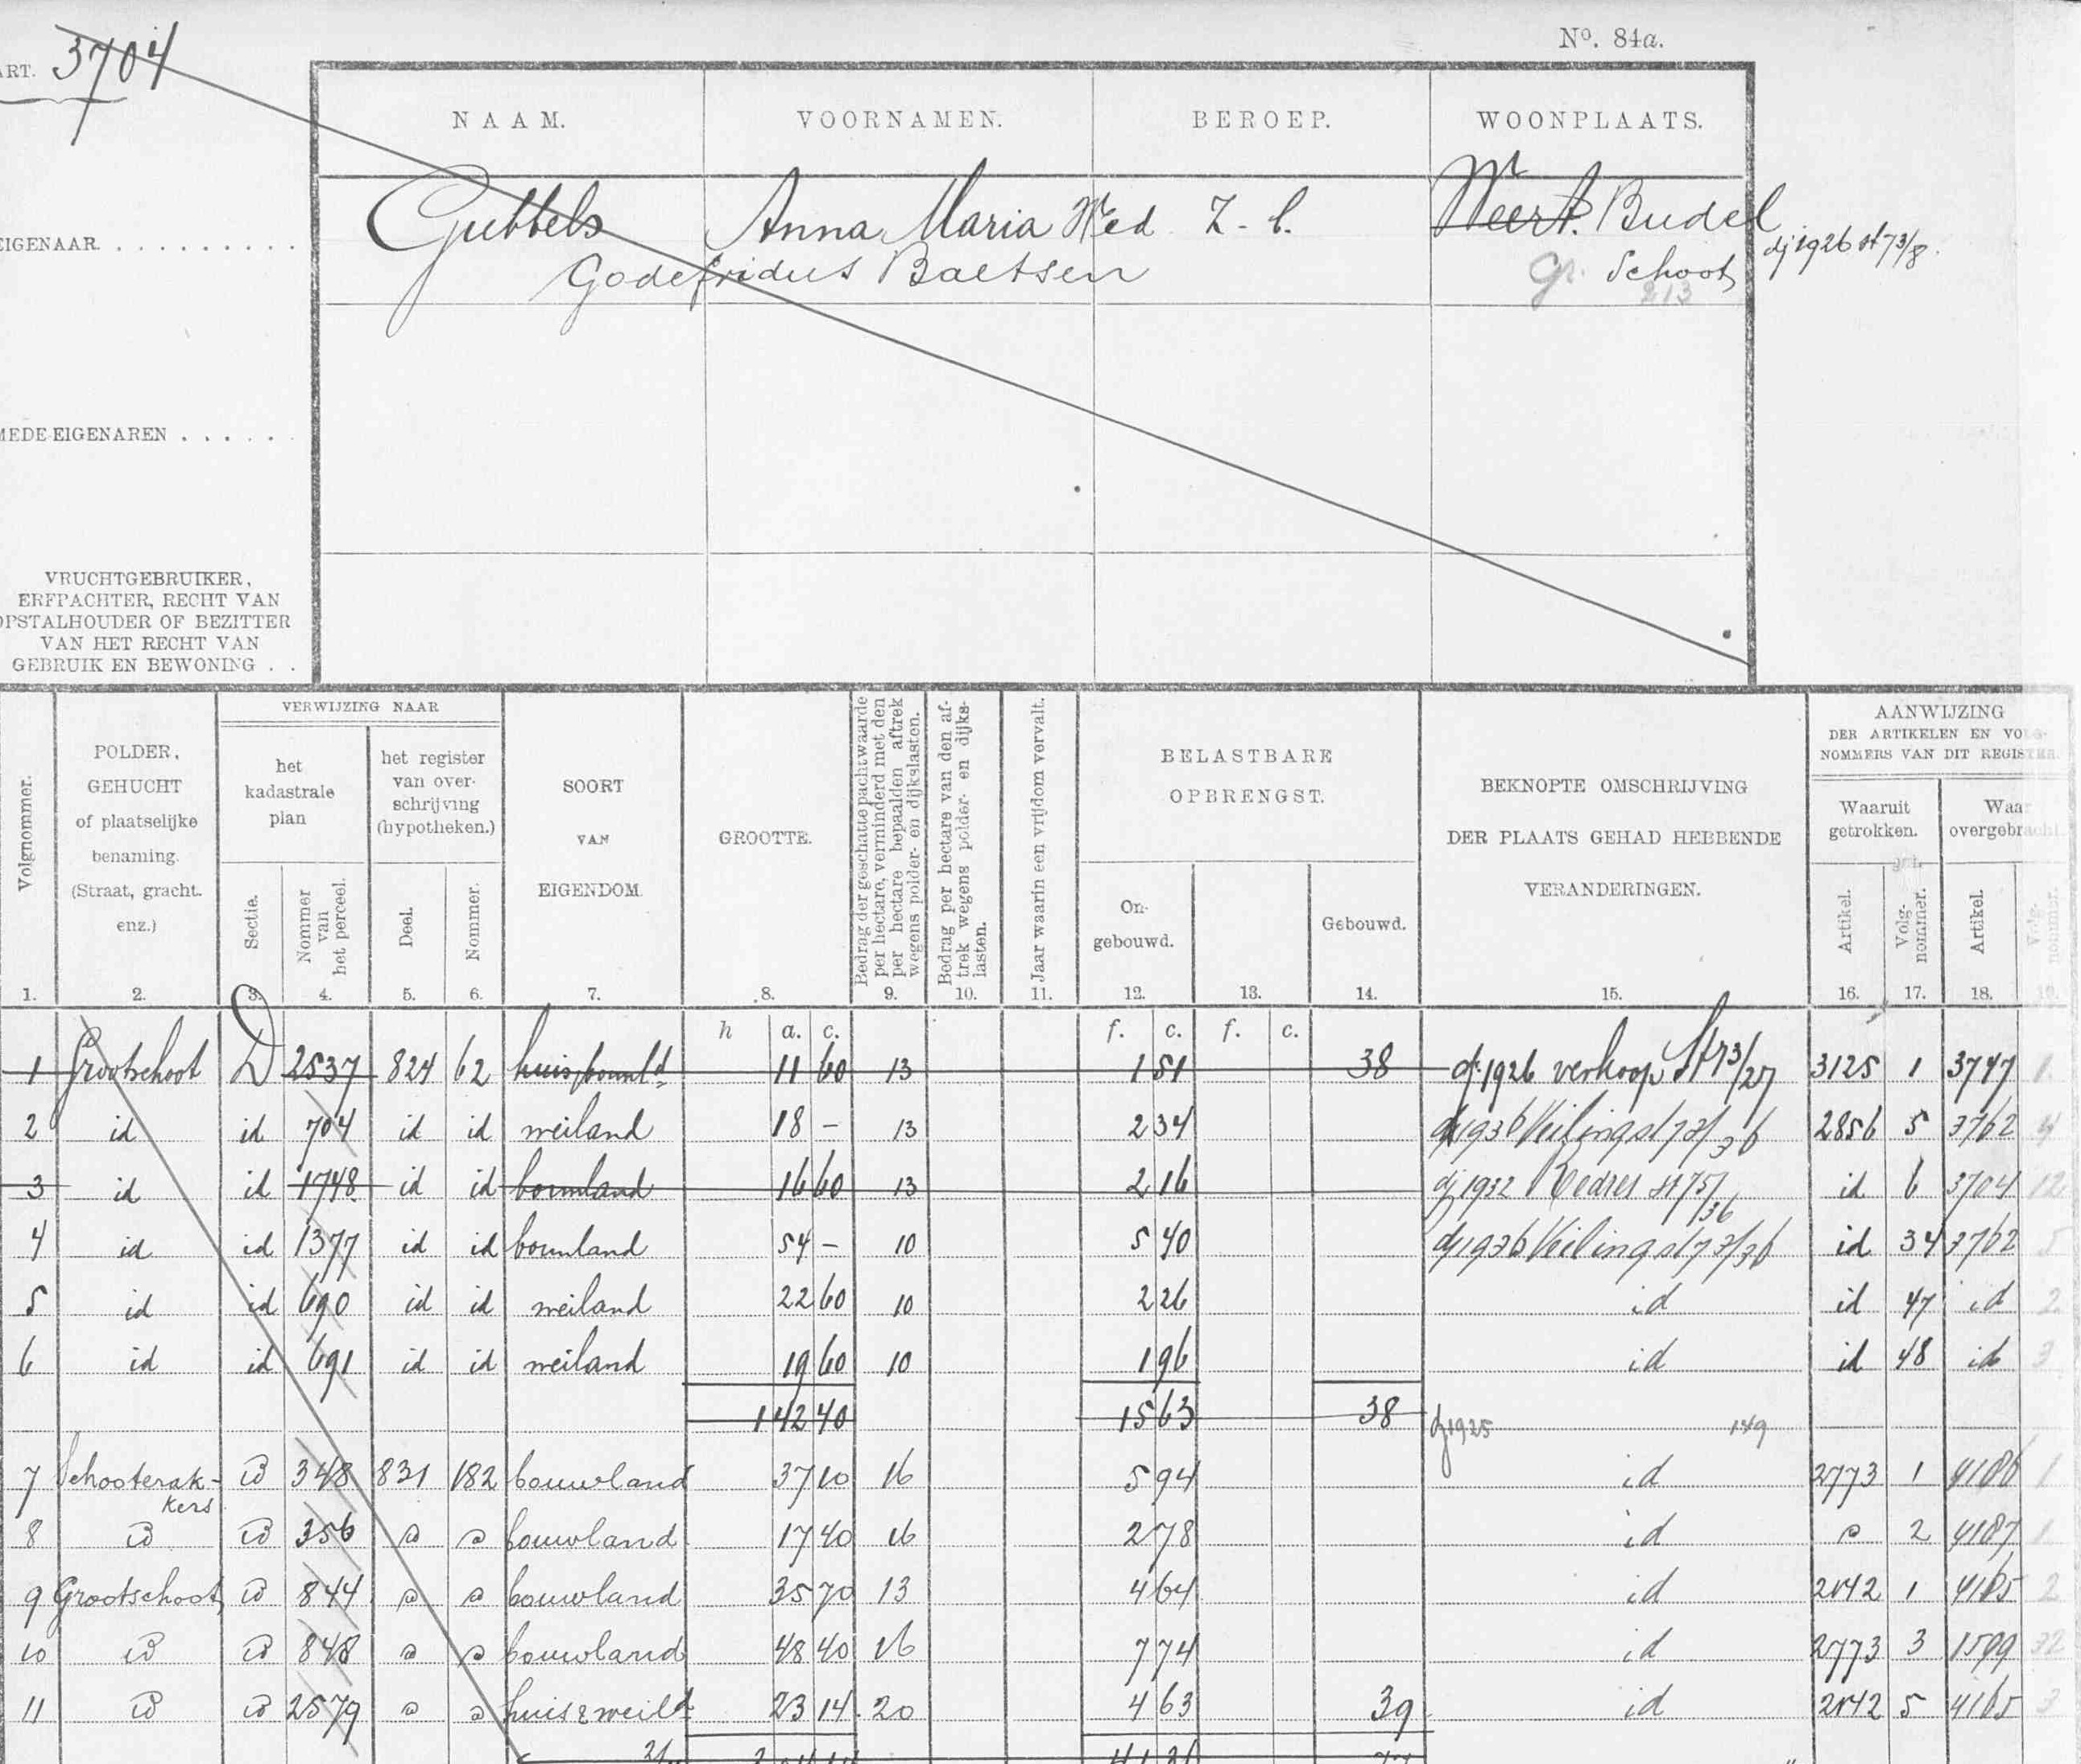 No. 84a.
ART. 3704
NAAM. VOORNAMEN. BEROEP. WOONPLAATS.
EIGENAAR. Gubbels Anna Maria Wed Z. b. Weert. Budel
Godefridus Baetsen Gr. Schoot dj 1926 st 73/8.
213
MEDE-EIGENAREN
VRUCHTGEBRUIKER,
ERFPACHTER, RECHT VAN
OPSTALHOUDER OF BEZITTER
VAN HET RECHT VAN
GEBRUIK EN BEWONING
Volgnommer.
POLDER,
GEHUCHT
of plaatselijke
benaming.
(Straat, gracht.
enz.)
VERWIJZING NAAR
het
kadastrale
plan
Sectie.
Nommer
van
het perceel.
het register
van over-
schrijving
(hypotheken.)
Deel.
Nommer.
SOORT
VAN
EIGENDOM.
GROOTTE.
Bedrag der geschatte pachtwaarde
per hectare, verminderd met den
per hectare bepaalden aftrek
wegens polder- en dijkslasten.
Bedrag per hectare van den af-
trek wegens polder- en dijks-
lasten.
Jaar waarin een vrijdom vervalt.
BELASTBARE
OPBRENGST.
On-
gebouwd.
Gebouwd.
BEKNOPTE OMSCHRIJVING
DER PLAATS GEHAD HEBBENDE
VERANDERINGEN.
AANWIJZING
DER ARTIKELEN EN VOLG-
NOMMERS VAN DIT REGISTER.
Waaruit
getrokken.
Waar
overgebracht.
Artikel.
Volg-
nommer.
Artikel.
Volg-
nommer.
1. 2. 3. 4. 5. 6. 7. 8. 9. 10. 11. 12. 13. 14. 15. 16. 17. 18. 19.
h a. c. f. c. f. c.
1 Grootschoot D 2537 824 62 huis, bouwld 11 60 13 1 51 38 dj. 1926 verkoop St 73/27 3125 1 3747 1
2 id id 704 id id weiland 18 - 13 2 34 dj 1936 Veiling st 73/36 2856 5 3762 4
3 id id 1748 id id bouwland 16 60 13 2 16 dj 1932 Redres st 75/36 id 6 3704 12
4 id id 1377 id id bouwland 54 - 10 5 40 dj 1936 Veiling st 73/36 id 34 3762 5
5 id id 690 id id weiland 22 60 10 2 26 id id 47 id 2
6 id id 691 id id weiland 19 60 10 1 96 id id 48 id 3
1 42 40 15 63 38 dj 1925 149
7 Schooterak-
kers id 348 831 182 bouwland 37 10 16 5 94 id 2773 1 4186 1
8 id id 356 id id bouwland 17 40 16 2 78 id id 2 4187 1
9 Grootschoot id 844 id id bouwland 35 70 13 4 64 id 2142 1 4165 2
10 id id 848 id id bouwland 48 40 16 7 74 id 2773 3 1599 32
11 id id 2579 id id huis & weild 23 14 20 4 63 39 id 2142 5 4165 3